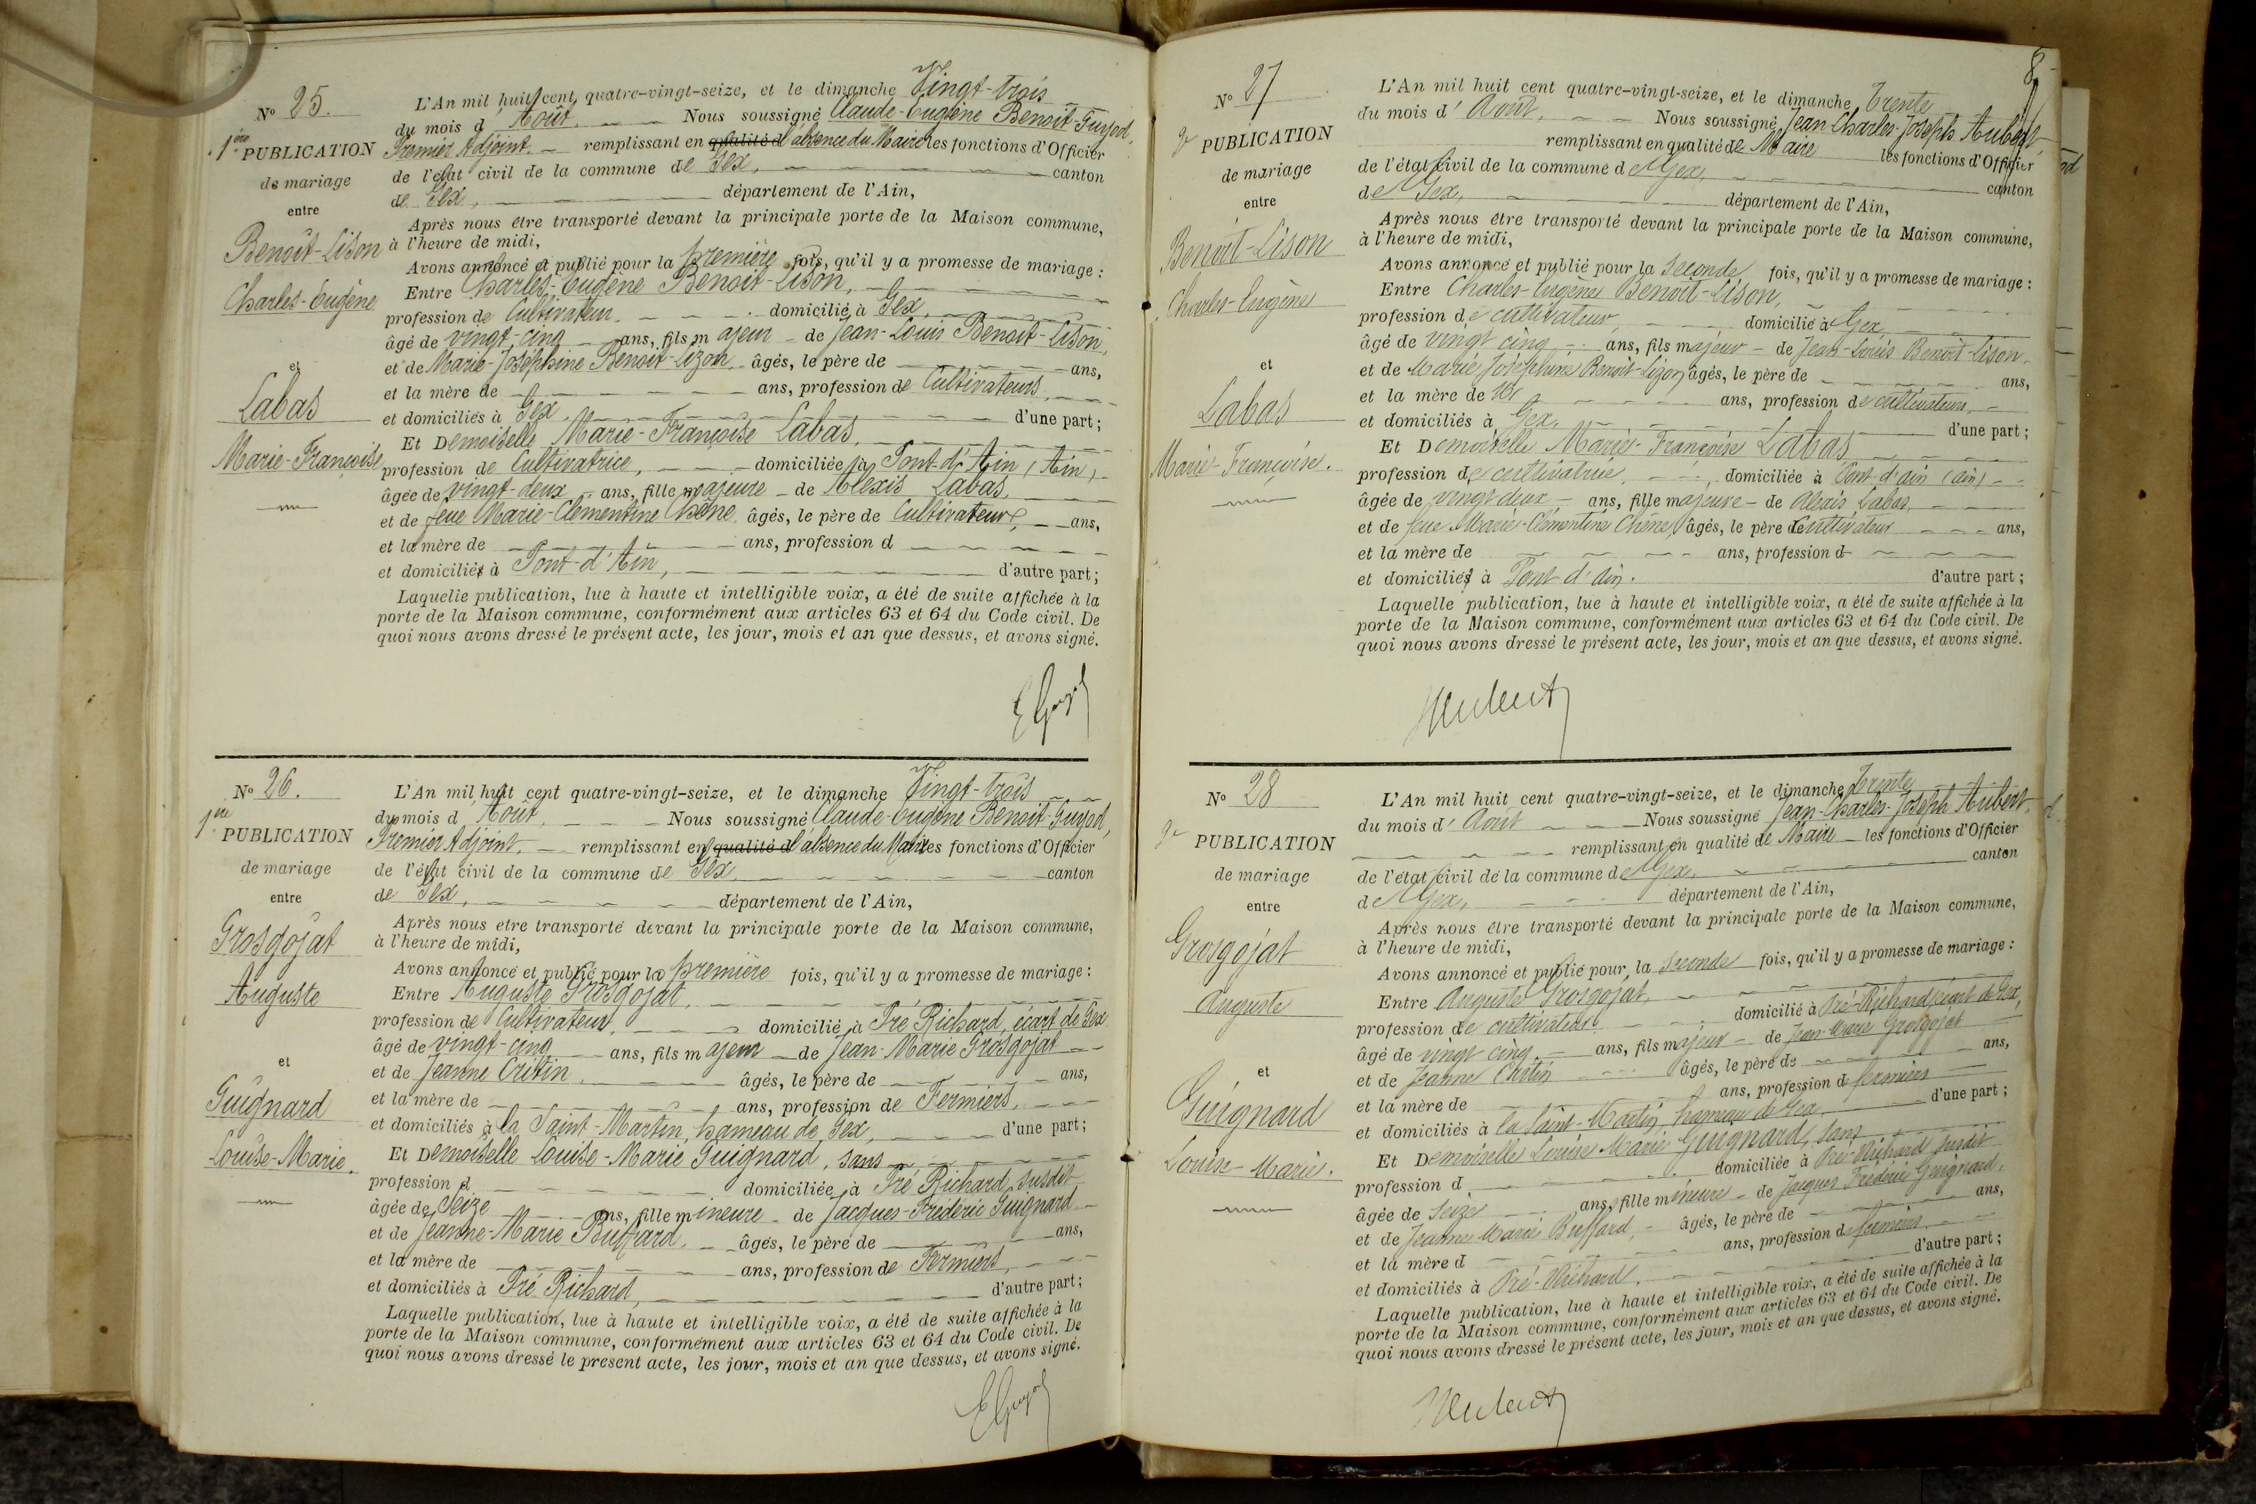 N° 25.
1ère PUBLICATION
de mariage
entre
Benoît-Lison
Charles-Eugène
et
Labas
Marie-Françoise
L'An mil huit cent quatre-vingt-seize, et le dimanche Vingt-trois
du mois d'Août. Nous soussigné Claude-Eugène Benoit-Guyod,
Premier Adjoint. remplissant en qualité d l'absence du Maire les fonctions d'Officier
de l'état civil de la commune de Gex, canton
de Gex, département de l'Ain,
Après nous être transporté devant la principale porte de la Maison commune,
à l'heure de midi,
Avons annoncé et publié pour la première fois, qu'il y a promesse de mariage :
Entre Charles-Eugène Benoit-Lison,
profession de Cultivateur. domicilié à Gex,
âgé de vingt-cinq ans, fils majeur de Jean-Louis Benoit-Lison,
et de Marie-Joséphine Benoit-Lizon âgés, le père de ans,
et la mère de ans, profession de Cultivateurs,
et domiciliés à Gex. d'une part ;
Et Demoiselle Marie-Françoise Labas,
profession de Cultivatrice, domiciliée à Pont-d'Ain (Ain)
âgée de vingt-deux ans, fille majeure de Alexis Labas,
et de feue Marie-Clémentine Chêne âgés, le père de Cultivateur, ans,
et la mère de ans, profession d
et domiciliés à Pont-d'Ain, d'autre part ;
Laquelle publication, lue à haute et intelligible voix, a été de suite affichée à la
porte de la Maison commune, conformément aux articles 63 et 64 du Code civil. De
quoi nous avons dressé le présent acte, les jour, mois et an que dessus, et avons signé.
N° 26.
1ère
PUBLICATION
de mariage
entre
Grosgojat
Auguste
et
Guignard
Louise-Marie.
L'An mil huit cent quatre-vingt-seize, et le dimanche Vingt-trois
du mois d'Août, Nous soussigné Claude-Eugène Benoit-Guyod,
Premier Adjoint. remplissant en qualité d l'absence du Maire les fonctions d'Officier
de l'état civil de la commune de Gex, canton
de Gex, département de l'Ain,
Après nous être transporté devant la principale porte de la Maison commune,
à l'heure de midi,
Avons annoncé et publié pour la première fois, qu'il y a promesse de mariage :
Entre Auguste Grosgojat,
profession de Cultivateur, domicilié à Pré Richard, écart de Gex
âgé de vingt-cinq ans, fils majeur de Jean-Marie Grosgojat
et de Jeanne Critin, âgés, le père de ans,
et la mère de ans, profession de Fermiers,
et domiciliés à la Saint-Martin, hameau de Gex, d'une part ;
Et Demoiselle Louise-Marie Guignard, sans
profession d domiciliée à Pré Richard, susdit
âgée de Seize ans, fille mineure de Jacques-Frédéric Guignard
et de Jeanne-Marie Buffard, âgés, le père de ans,
et la mère de ans, profession de Fermiers,
et domiciliés à Pré Richard, d'autre part ;
Laquelle publication, lue à haute et intelligible voix, a été de suite affichée à la
porte de la Maison commune, conformément aux articles 63 et 64 du Code civil. De
quoi nous avons dressé le présent acte, les jour, mois et an que dessus, et avons signé.
8
N° 27
2e
PUBLICATION
de mariage
entre
Benoit-Lison
Charles-Eugène
et
Labas
Marie-Françoise.
L'An mil huit cent quatre-vingt-seize, et le dimanche Trente
du mois d'Août, Nous soussigné Jean-Charles-Joseph Aubert,
remplissant en qualité de Maire les fonctions d'Officier
de l'état civil de la commune de Gex, canton
de Gex, département de l'Ain,
Après nous être transporté devant la principale porte de la Maison commune,
à l'heure de midi,
Avons annoncé et publié pour la seconde fois, qu'il y a promesse de mariage :
Entre Charles-Eugène Benoît-Lison,
profession de cultivateur, domicilié à Gex
âgé de vingt cinq ans, fils majeur de Jean-Louis Benoit-Lison
et de Marie Joséphine Benoit-Lizon âgés, le père de ans,
et la mère de ans, profession de cultivateurs,
et domiciliés à Gex, d'une part ;
Et Demoiselle Marie-Françoise Labas
profession de cultivatrice, domiciliée à Pont-d'ain (ain)
âgée de vingt deux ans, fille majeure de Alexis Labas,
et de feue Marie-Clémentine Chêne, âgés, le père de cultivateur ans,
et la mère de ans, profession d
et domiciliés à Pont d'ain. d'autre part ;
Laquelle publication, lue à haute et intelligible voix, a été de suite affichée à la
porte de la Maison commune, conformément aux articles 63 et 64 du Code civil. De
quoi nous avons dressé le présent acte, les jour, mois et an que dessus, et avons signé.
N° 28
2e
PUBLICATION
de mariage
entre
Grosgojat
Auguste
et
Guignard
Louise-Marie.
L'An mil huit cent quatre-vingt-seize, et le dimanche Trente
du mois d'Août Nous soussigné Jean-Charles-Joseph Aubert,
remplissant en qualité de Maire les fonctions d'Officier
de l'état civil de la commune de Gex, canton
de Gex, département de l'Ain,
Après nous être transporté devant la principale porte de la Maison commune,
à l'heure de midi,
Avons annoncé et publié pour la seconde fois, qu'il y a promesse de mariage :
Entre Auguste Grosgojat,
profession de cultivateur domicilié à Pré-Richard, écart de Gex,
âgé de vingt cinq ans, fils majeur de Jean-Marie Grosgojat
et de Jeanne Critin âgés, le père de ans,
et la mère de ans, profession de fermiers
et domiciliés à la Saint-Martin, hameau de Gex d'une part ;
Et Demoiselle Louise Marie Guignard, sans
profession d domiciliée à Pré-Richard susdit
âgée de Seize ans, fille mineure de Jacques Frédéric Guignard,
et de Jeanne Marie Buffard, âgés, le père de ans,
et la mère d ans, profession de fermiers
et domiciliés à Pré-Richard, d'autre part ;
Laquelle publication, lue à haute et intelligible voix, a été de suite affichée à la
porte de la Maison commune, conformément aux articles 63 et 64 du Code civil. De
quoi nous avons dressé le présent acte, les jour, mois et an que dessus, et avons signé.